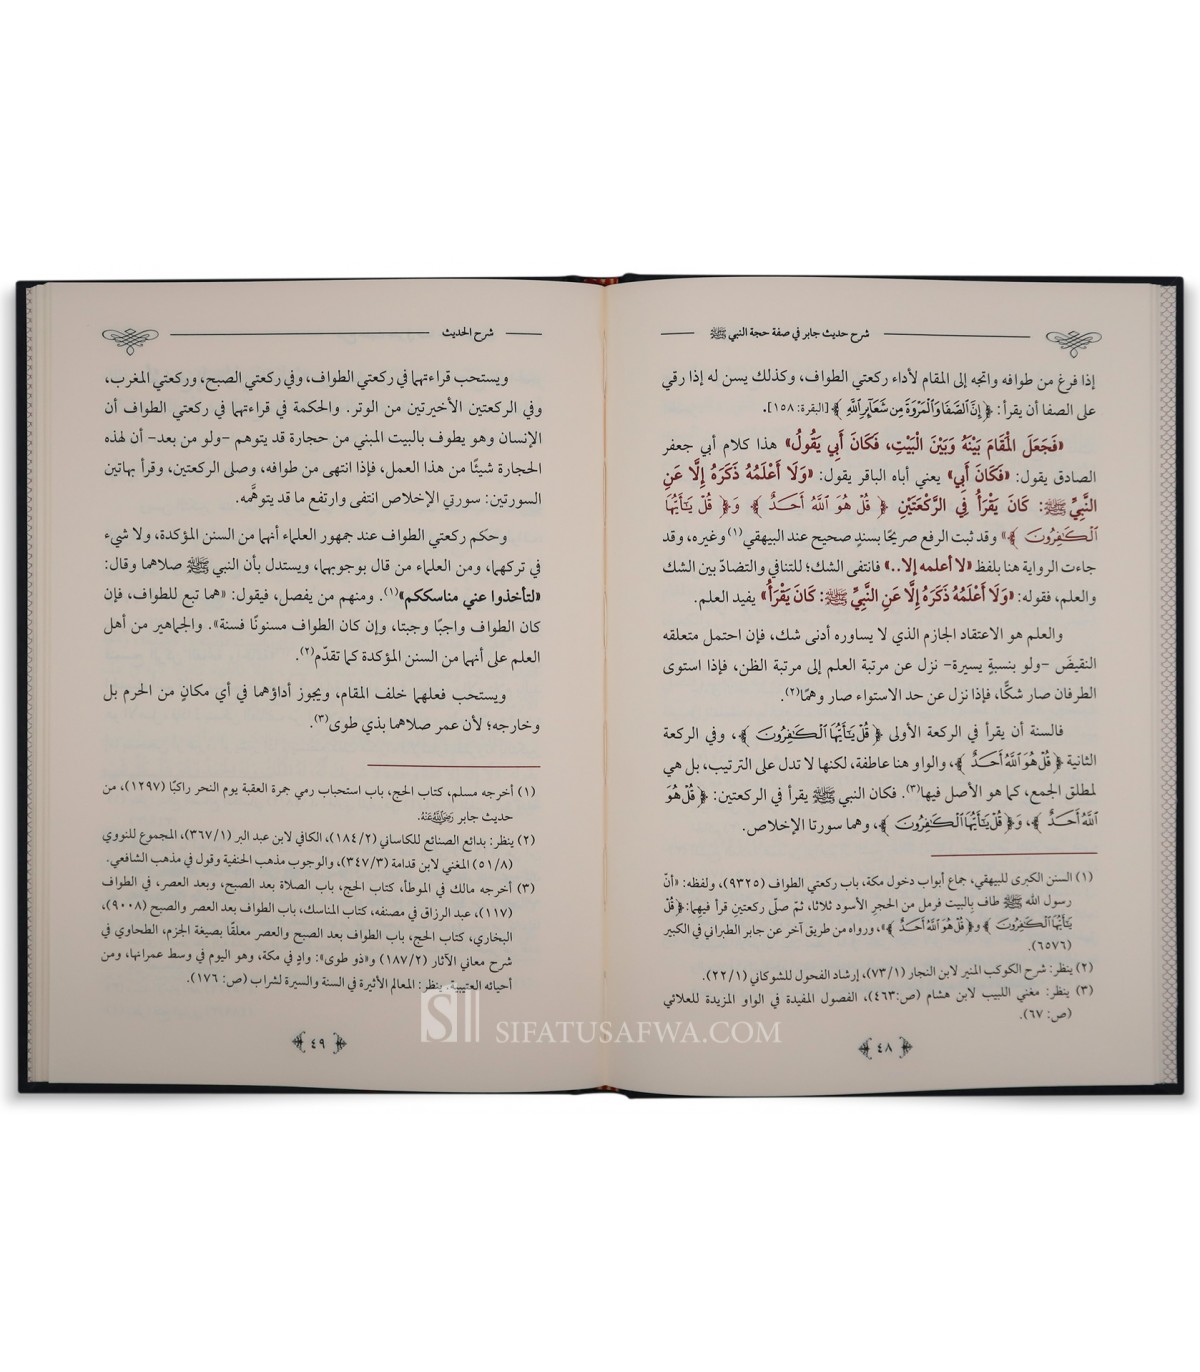 شرح حديث جابر في صفة حجة النبي ﷺ
إذا فرغ من طوافه واتجه إلى المقام لأداء ركعتي الطواف، وكذلك يسن له إذا رقي
على الصفا أن يقرأ: ﴿إِنَّ ٱلصَّفَا وَٱلْمَرْوَةَ مِن شَعَآئِرِ ٱللَّهِ﴾ [البقرة: ١٥٨].
«فَجَعَلَ الْمَقَامَ بَيْنَهُ وَبَيْنَ الْبَيْتِ، فَكَانَ أَبِي يَقُولُ» هذا كلام أبي جعفر
الصادق يقول: «فَكَانَ أَبِي» يعني أباه الباقر يقول: «وَلَا أَعْلَمُهُ ذَكَرَهُ إِلَّا عَنِ
النَّبِيِّ ﷺ: كَانَ يَقْرَأُ فِي الرَّكْعَتَيْنِ ﴿قُلْ هُوَ ٱللَّهُ أَحَدٌ﴾ وَ﴿قُلْ يَٰٓأَيُّهَا
ٱلْكَٰفِرُونَ﴾» وقد ثبت الرفع صريحًا بسندٍ صحيح عند البيهقي(١) وغيره، وقد
جاءت الرواية هنا بلفظ «لا أعلمه إلا..» فانتفى الشك؛ للتنافي والتضادّ بين الشك
والعلم، فقوله: «وَلَا أَعْلَمُهُ ذَكَرَهُ إِلَّا عَنِ النَّبِيِّ ﷺ: كَانَ يَقْرَأُ» يفيد العلم.
والعلم هو الاعتقاد الجازم الذي لا يساوره أدنى شك، فإن احتمل متعلقه
النقيضَ -ولو بنسبةٍ يسيرة- نزل عن مرتبة العلم إلى مرتبة الظن، فإذا استوى
الطرفان صار شكًّا، فإذا نزل عن حد الاستواء صار وهمًا(٢).
فالسنة أن يقرأ في الركعة الأولى ﴿قُلْ يَٰٓأَيُّهَا ٱلْكَٰفِرُونَ﴾، وفي الركعة
الثانية ﴿قُلْ هُوَ ٱللَّهُ أَحَدٌ﴾، والواو هنا عاطفة، لكنها لا تدل على الترتيب، بل هي
لمطلق الجمع، كما هو الأصل فيها(٣). فكان النبي ﷺ يقرأ في الركعتين: ﴿قُلْ هُوَ
ٱللَّهُ أَحَدٌ﴾، وَ﴿قُلْ يَٰٓأَيُّهَا ٱلْكَٰفِرُونَ﴾، وهما سورتا الإخلاص.
(١) السنن الكبرى للبيهقي، جماع أبواب دخول مكة، باب ركعتي الطواف (٩٣٢٥)، ولفظه: «أنّ
رسول الله ﷺ طاف بِالبيت فرمل من الحجرِ الأسود ثلاثا، ثمّ صلّى ركعتينِ قرأ فيهما: ﴿قُلْ
يَٰٓأَيُّهَا ٱلْكَٰفِرُونَ﴾ و﴿قُلْ هُوَ ٱللَّهُ أَحَدٌ﴾»، ورواه من طريق آخر عن جابر الطبراني في الكبير
(٦٥٧٦).
(٢) ينظر: شرح الكوكب المنير لابن النجار (٧٣/١)، إرشاد الفحول للشوكاني (٢٢/١).
(٣) ينظر: مغني اللبيب لابن هشام (ص:٤٦٣)، الفصول المفيدة في الواو المزيدة للعلائي
(ص: ٦٧).
٤٨
شرح الحديث
ويستحب قراءتهما في ركعتي الطواف، وفي ركعتي الصبح، وركعتي المغرب،
وفي الركعتين الأخيرتين من الوتر. والحكمة في قراءتهما في ركعتي الطواف أن
الإنسان وهو يطوف بالبيت المبني من حجارة قد يتوهم -ولو من بعد- أن لهذه
الحجارة شيئًا من هذا العمل، فإذا انتهى من طوافه، وصلى الركعتين، وقرأ بهاتين
السورتين: سورتي الإخلاص انتفى وارتفع ما قد يتوهَّمه.
وحكم ركعتي الطواف عند جمهور العلماء أنهما من السنن المؤكدة، ولا شيء
في تركهما، ومن العلماء من قال بوجوبهما، ويستدل بأن النبي ﷺ صلاهما وقال:
«لتأخذوا عني مناسككم»(١). ومنهم من يفصل، فيقول: «هما تبع للطواف، فإن
كان الطواف واجبًا وجبتا، وإن كان الطواف مسنونًا فسنة». والجماهير من أهل
العلم على أنهما من السنن المؤكدة كما تقدّم(٢).
ويستحب فعلهما خلف المقام، ويجوز أداؤهما في أي مكانٍ من الحرم بل
وخارجه؛ لأن عمر صلاهما بذي طوى(٣).
(١) أخرجه مسلم، كتاب الحج، باب استحباب رمي جمرة العقبة يوم النحر راكبًا (١٢٩٧)، من
حديث جابر رَضِيَ اللَّهُ عَنْهُ.
(٢) ينظر: بدائع الصنائع للكاساني (١٨٤/٢)، الكافي لابن عبد البر (٣٦٧/١)، المجموع للنووي
(٥١/٨) المغني لابن قدامة (٣٤٧/٣)، والوجوب مذهب الحنفية وقول في مذهب الشافعي.
(٣) أخرجه مالك في الموطأ، كتاب الحج، باب الصلاة بعد الصبح، وبعد العصر، في الطواف
(١١٧)، عبد الرزاق في مصنفه، كتاب المناسك، باب الطواف بعد العصر والصبح (٩٠٠٨)،
البخاري، كتاب الحج، باب الطواف بعد الصبح والعصر معلقًا بصيغة الجزم، الطحاوي في
شرح معاني الآثار (١٨٧/٢) و«ذو طوى»: وادٍ في مكة، وهو اليوم في وسط عمرانها، ومن
أحيائه العتيبية. ينظر: المعالم الأثيرة في السنة والسيرة لشراب (ص: ١٧٦).
٤٩
SIFATUSAFWA.COM